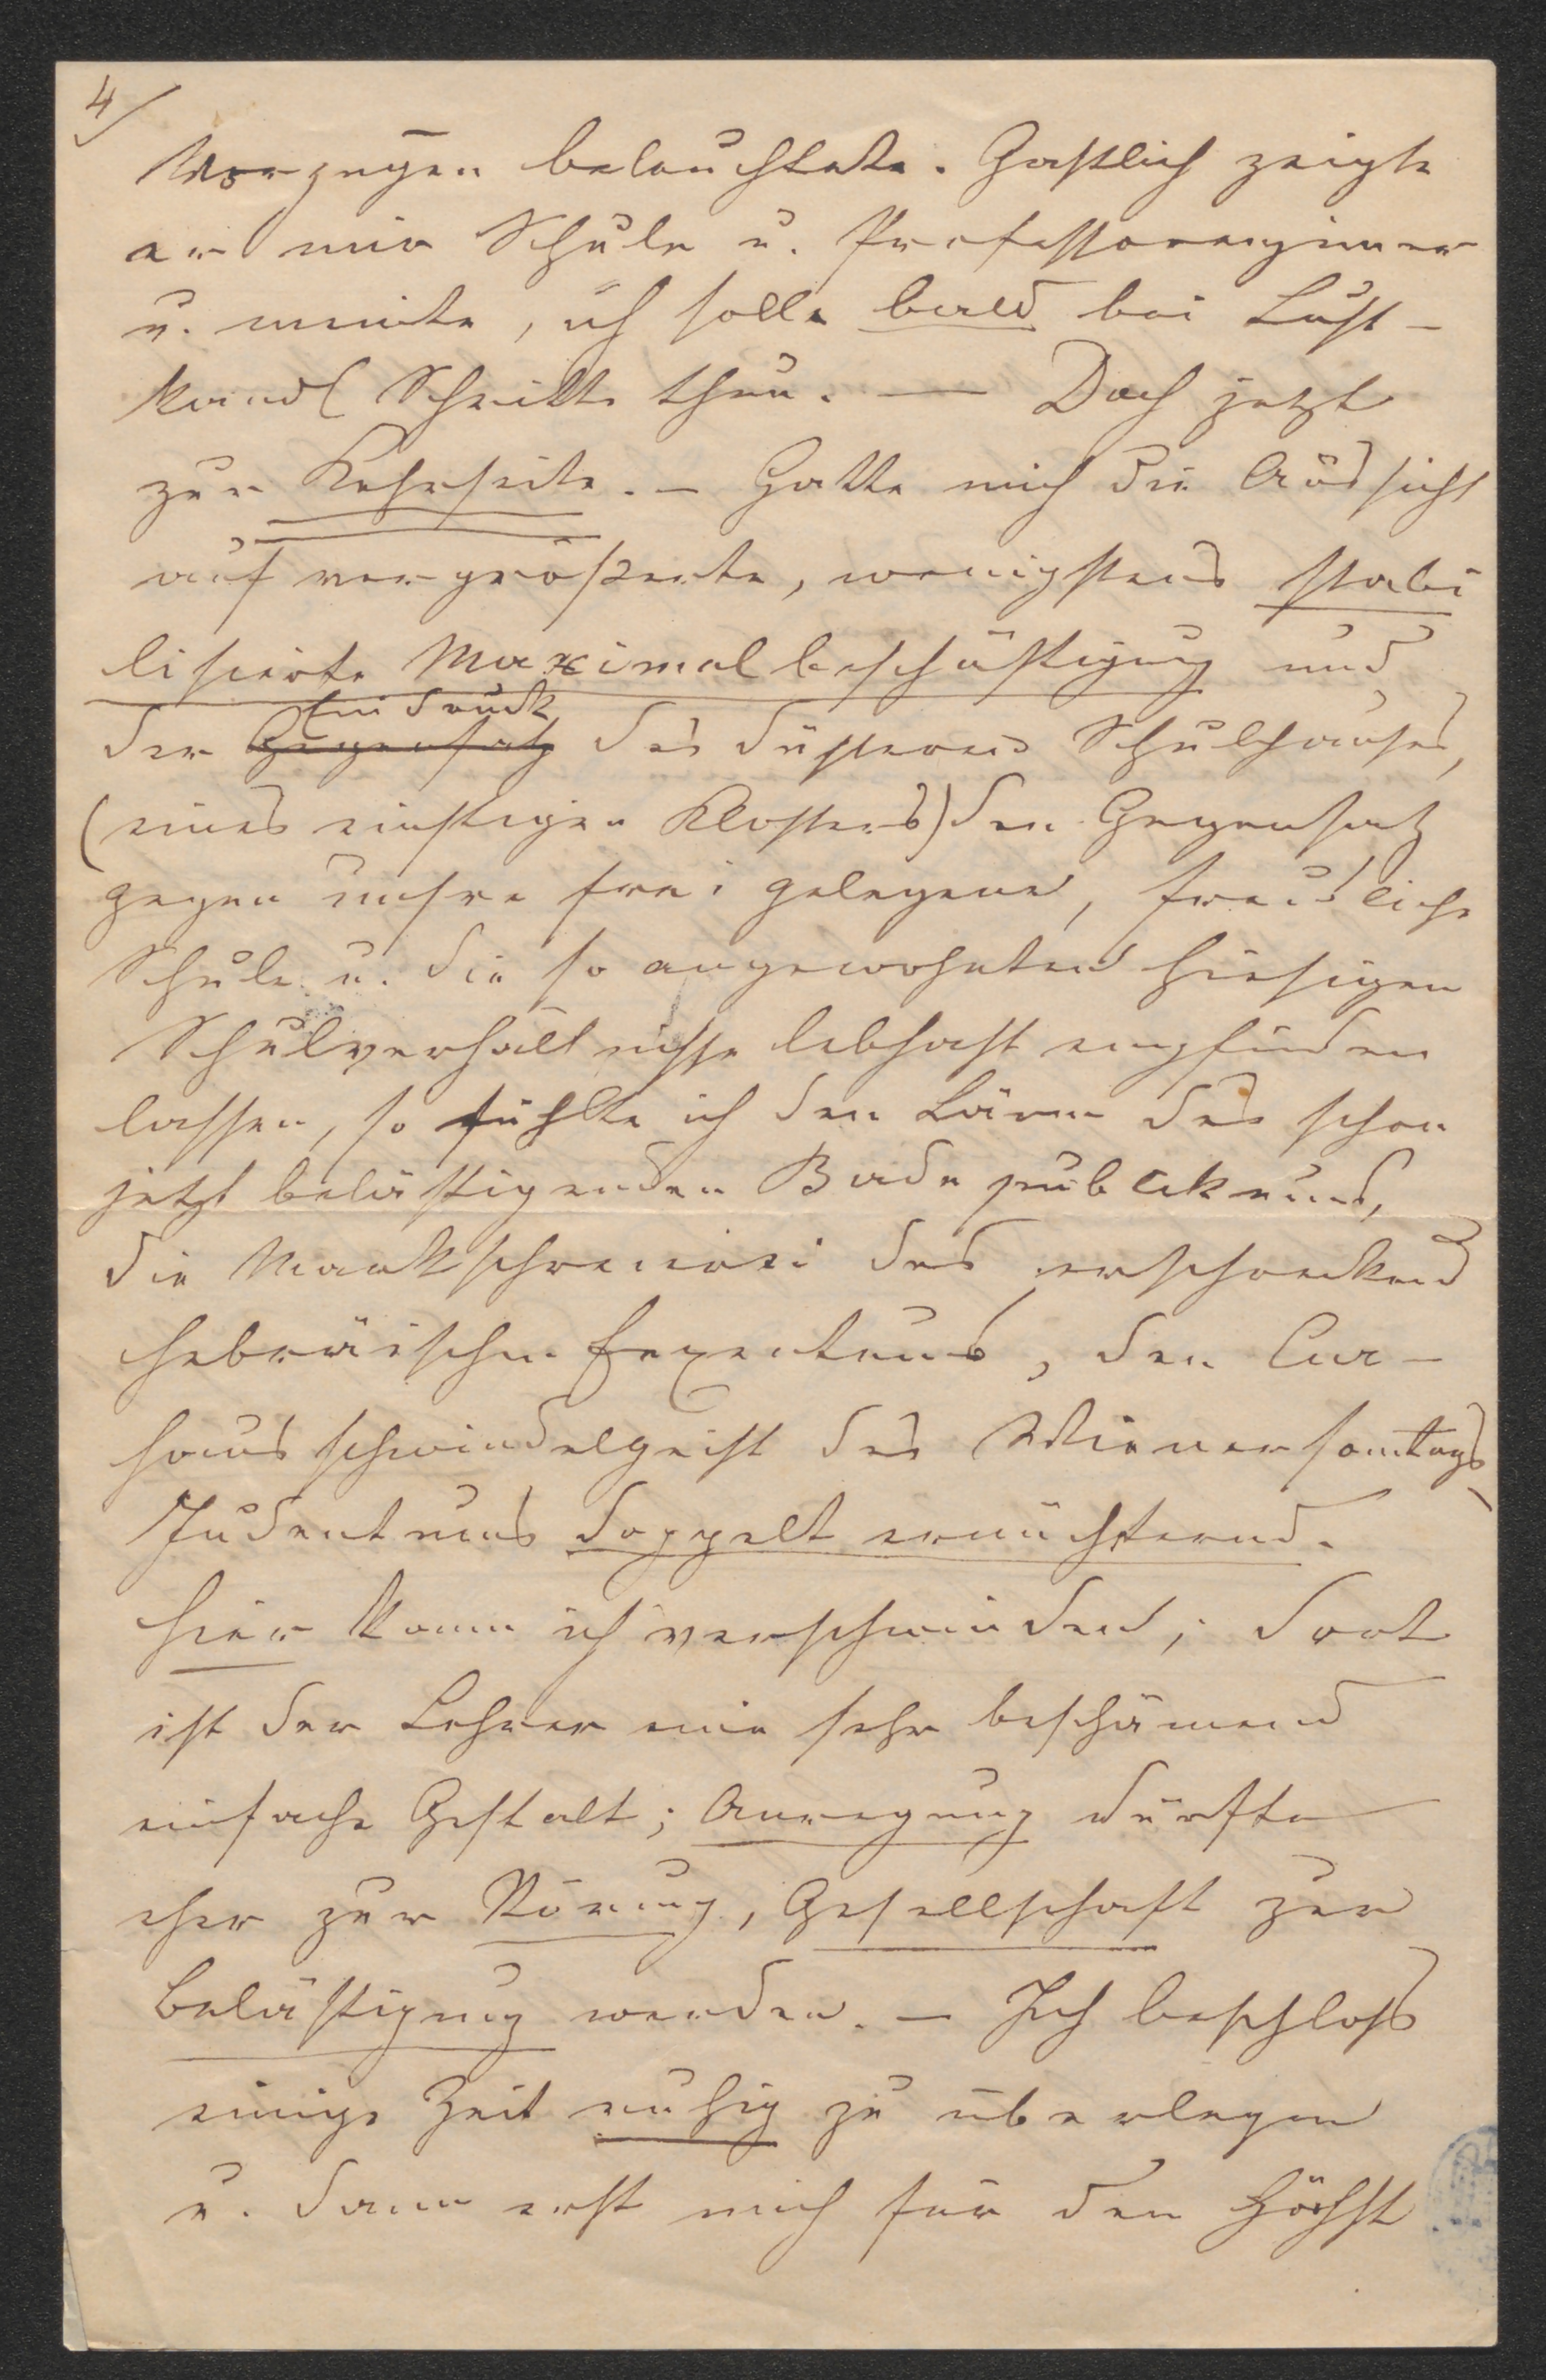 4/
Vorzügen beleuchtete. Gastlich zeigte
er mir Schule u. Professorenzimmer
u. meinte, ich solle bald bei Lust-
kandl Schritte thun. — Doch jetzt
zur Kehrseite. — Hatte mich die Aussicht
auf vergrößerte, wenigstens stabi
lisierte Maximalbeschäftigung und
Eindruck
der Gegensatz des düsteren Schulhauses,
(eines einstigen Klosters) den Gegensatz
gegen unsre frei gelegene, freundliche
Schule u. die so angewohnten hiesigen
Schulverhältnisse lebhaft empfinden
lassen, so fühlte ich den Lärm des schon
jetzt belästigenden Badepublikums,
die Marktschreierei des erschreckend
hebräischen Expertums, den Cur-
hausschwindelgeist des Wienersonntags
Judentums doppelt ernüchternd.
Hier kann ich verschwinden; dort
ist der Lehrer eine sehr beschämend
einfache Gestalt; Anregung dürfte
eher zur Störung, Gesellschaft zur
Belästigung werden. — Ich beschloss
einige Zeit ruhig zu überlegen
u. dann erst mich für den höchst